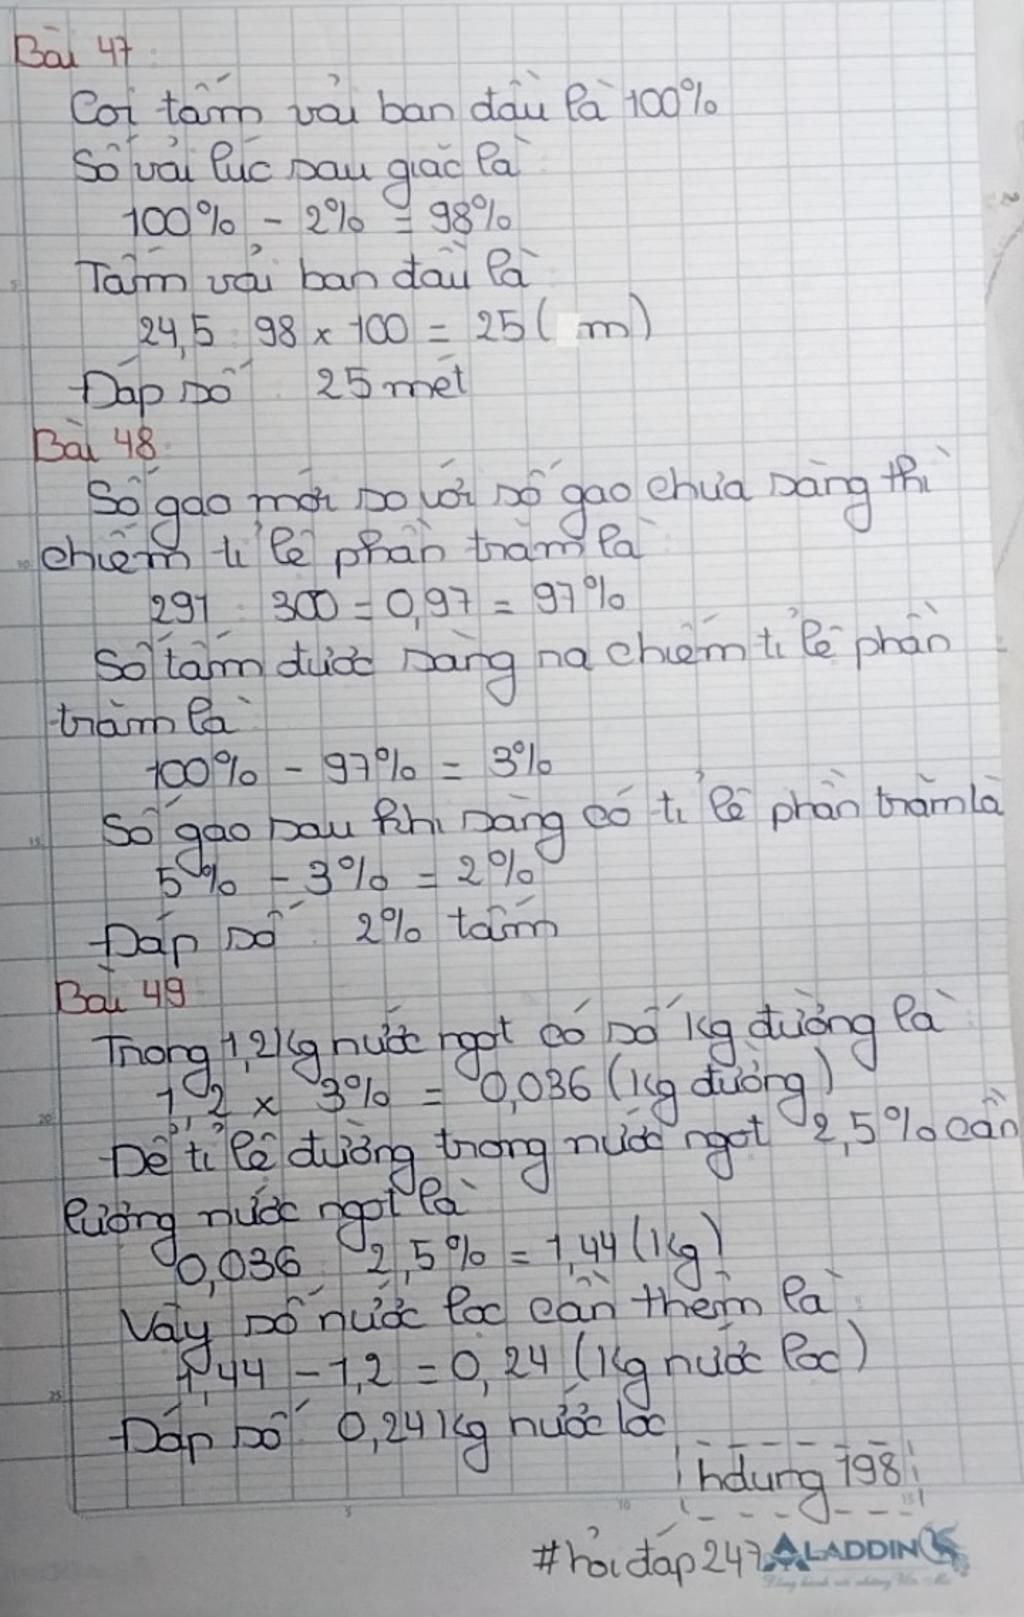 Bài 47:
Coi tấm vải ban đầu là 100%
Số vải lúc sau giặt là
100% - 2% = 98%
Tấm vải ban đầu là
24,5 : 98 x 100 = 25 ( m)
Đáp số : 25 mét
Bài 48:
Số gạo mới so với số gạo chưa sàng thì
chiếm tỉ lệ phần trăm là
291 : 300 = 0,97 = 97%
Số tấm được sàng ra chiếm tỉ lệ phần
trăm là
100% - 97% = 3%
Số gạo sau khi sàng có tỉ lệ phần trăm là
5% - 3% = 2%
Đáp số : 2% tấm
Bài 49
Trong 1,2 kg nước ngọt có số kg đường là
1,2 x 3% = 0,036 (kg đường)
Để tỉ lệ đường trong nước ngọt 2,5% cần
lượng nước ngọt là
0,036 : 2,5% = 1,44 (kg)
Vậy số nước lọc cần thêm là
1,44 - 1,2 = 0,24 (kg nước lọc)
Đáp số 0,24 kg nước lọc
hdung 198
#hỏi đáp 247
ALADDIN